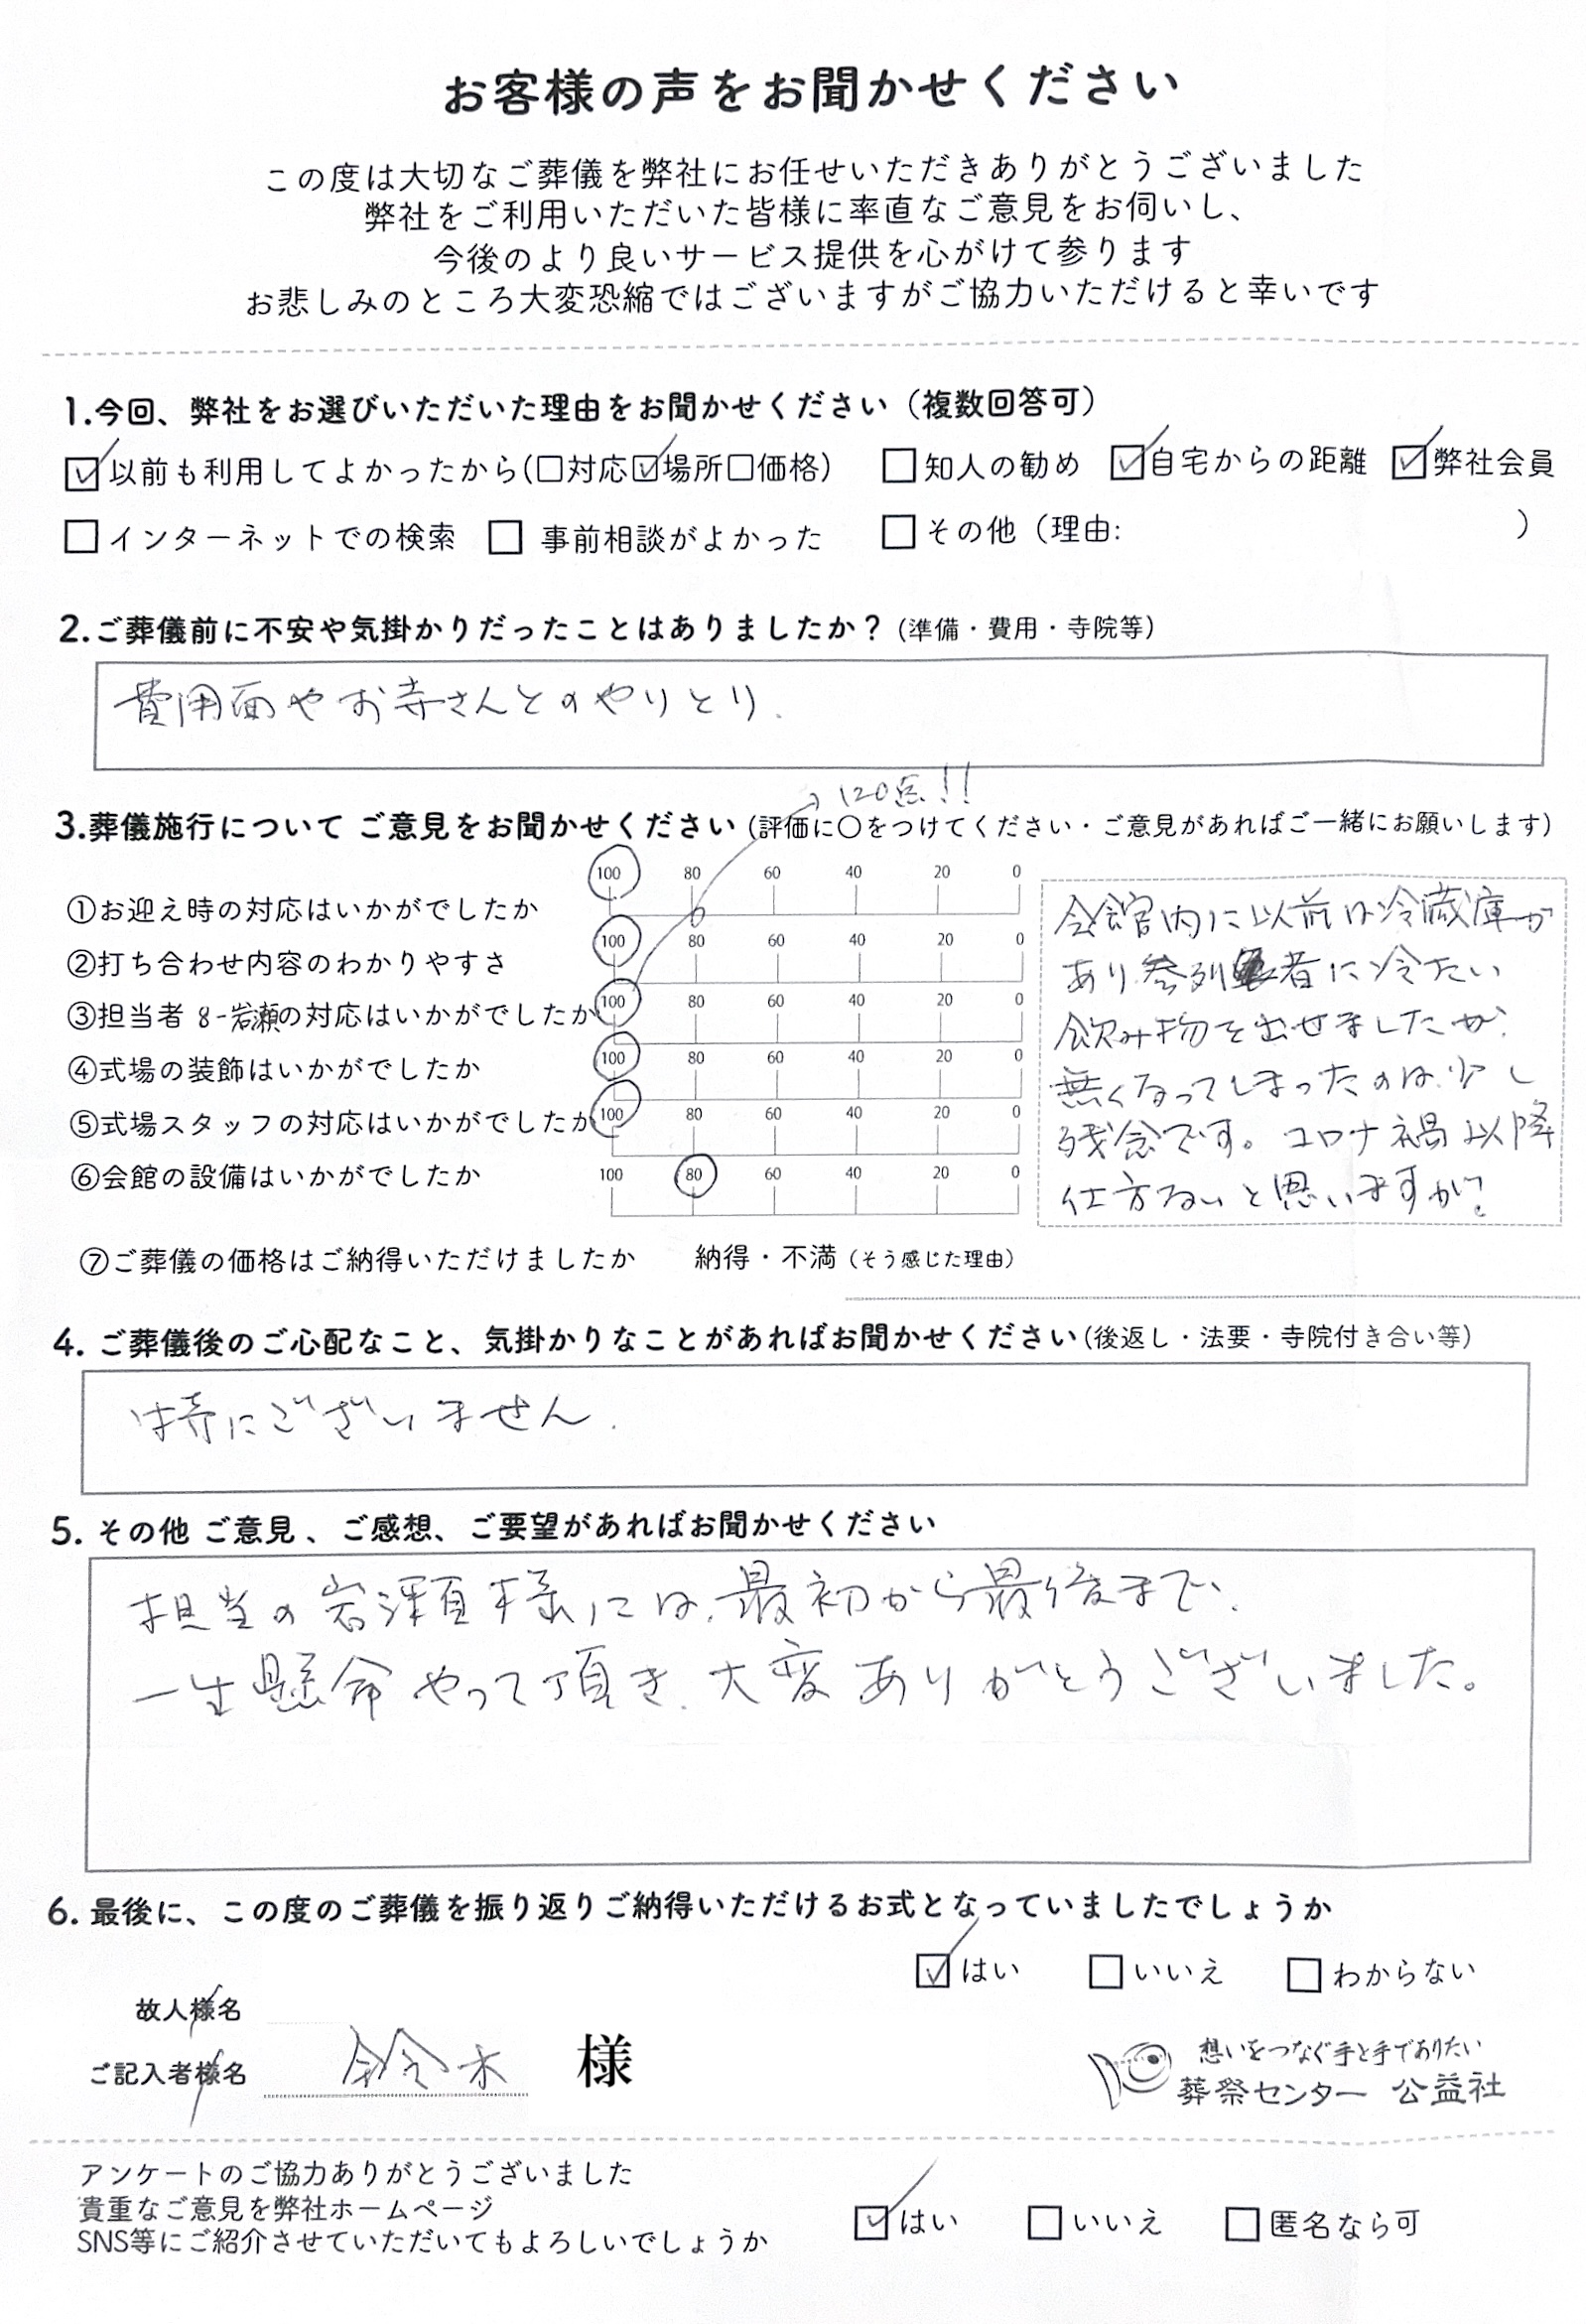 お客様の声をお聞かせください
この度は大切なご葬儀を弊社にお任せいただきありがとうございました
弊社をご利用いただいた皆様に率直なご意見をお伺いし、
今後のより良いサービス提供を心がけて参ります
お悲しみのところ大変恐縮ではございますがご協力いただけると幸いです
1.今回、弊社をお選びいただいた理由をお聞かせください（複数回答可）
☑以前も利用してよかったから(☐対応☑場所☐価格) ☐知人の勧め ☑自宅からの距離 ☑弊社会員
☐インターネットでの検索 ☐事前相談がよかった ☐その他（理由: ）
2.ご葬儀前に不安や気掛かりだったことはありましたか？(準備・費用・寺院等)
費用面やお寺さんとのやりとり.
→120点!!
3.葬儀施行について ご意見をお聞かせください(評価に〇をつけてください・ご意見があればご一緒にお願いします)
100 80 60 40 20 0
①お迎え時の対応はいかがでしたか
100 80 60 40 20 0
②打ち合わせ内容のわかりやすさ
100 80 60 40 20 0
③担当者 8-岩瀬の対応はいかがでしたか
100 80 60 40 20 0
④式場の装飾はいかがでしたか
100 80 60 40 20 0
⑤式場スタッフの対応はいかがでしたか
100 80 60 40 20 0
⑥会館の設備はいかがでしたか
会館内に以前は冷蔵庫が
あり参列者に冷たい
飲み物を出せましたが、
無くなってしまったのは、少し
残念です。コロナ禍以降
仕方ないと思いますが、
⑦ご葬儀の価格はご納得いただけましたか 納得・不満（そう感じた理由）
4. ご葬儀後のご心配なこと、気掛かりなことがあればお聞かせください(後返し・法要・寺院付き合い等)
特にございません.
5. その他 ご意見 、ご感想、ご要望があればお聞かせください
担当の岩瀬様には、最初から最後まで、
一生懸命やって頂き、大変ありがとうございました。
6. 最後に、この度のご葬儀を振り返りご納得いただけるお式となっていましたでしょうか
☑はい ☐いいえ ☐わからない
故人様名
ご記入者様名 鈴木 様
想いをつなぐ手と手でありたい
葬祭センター 公益社
アンケートのご協力ありがとうございました
貴重なご意見を弊社ホームページ
SNS等にご紹介させていただいてもよろしいでしょうか
☑はい ☐いいえ ☐匿名なら可